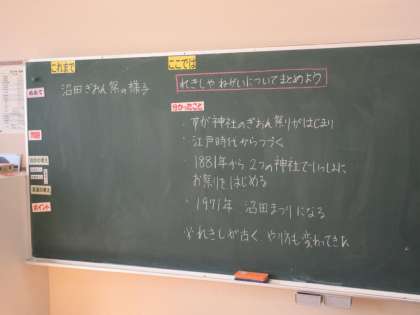 これまで
ここでは
めあて
沼田ぎおん祭の様子
れきしやねがいについてまとめよう
分かったこと
・すが神社のぎおん祭りがはじまり
問題
・江戸時代からつづく
・1881年から2つの神社でいっしょに
お祭りをはじめる
・1971年 沼田まつりになる
ポイント
※れきしが古く やり方も変わってきた